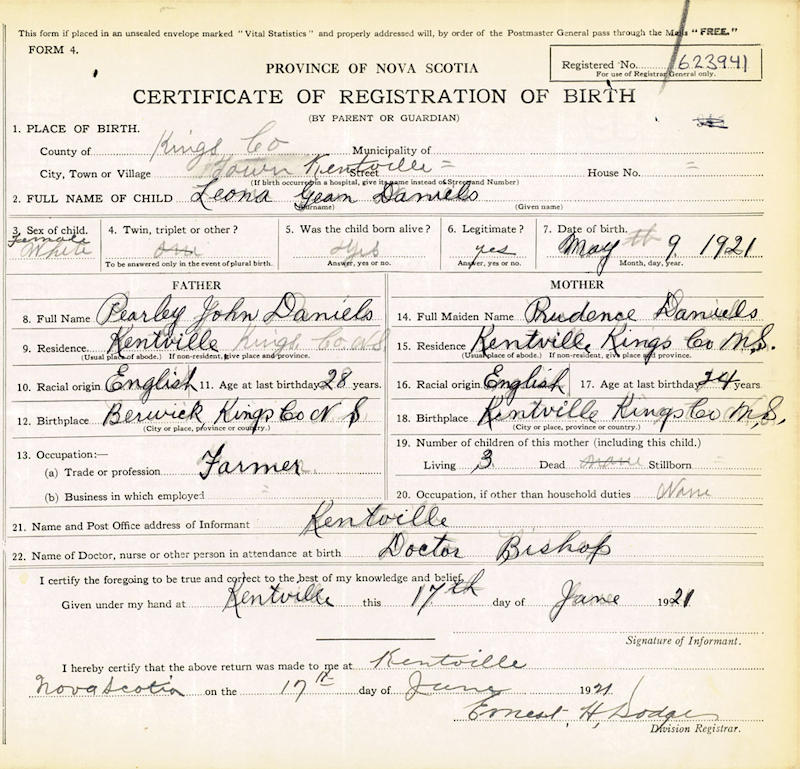 This form if placed in an unsealed envelope marked "Vital Statistics" and properly addressed will, by order of the Postmaster General pass through the Mails "FREE."
FORM 4.
Registered No. 623941
For use of Registrar General only.
PROVINCE OF NOVA SCOTIA
CERTIFICATE OF REGISTRATION OF BIRTH
(BY PARENT OR GUARDIAN)
1. PLACE OF BIRTH.
County of Kings Co Municipality of
City, Town or Village Town Kentville Street House No.
(If birth occurred in a hospital, give its name instead of Street and Number)
2. FULL NAME OF CHILD Leona Gean Daniels
(Surname) (Given name)
3. Sex of child. 4. Twin, triplet or other? 5. Was the child born alive? 6. Legitimate? 7. Date of birth.
Female White Yes yes May 9th 1921
To be answered only in the event of plural birth. Answer, yes or no. Answer, yes or no. Month, day, year.
FATHER MOTHER
8. Full Name Pearley John Daniels 14. Full Maiden Name Prudence Daniels
9. Residence. Kentville Kings Co N S 15. Residence Kentville Kings Co N.S.
(Usual place of abode.) If non-resident, give place and province. (Usual place of abode.) If non-resident, give place and province.
10. Racial origin English 11. Age at last birthday 28 years. 16. Racial origin English 17. Age at last birthday 24 years.
12. Birthplace Berwick Kings Co N S 18. Birthplace Kentville Kings Co N.S.
(City or place, province or country.) (City or place, province or country.)
13. Occupation:— 19. Number of children of this mother (including this child.)
(a) Trade or profession Farmer Living 3 Dead none Stillborn
(b) Business in which employed 20. Occupation, if other than household duties None
21. Name and Post Office address of Informant Kentville
22. Name of Doctor, nurse or other person in attendance at birth Doctor Bishop
I certify the foregoing to be true and correct to the best of my knowledge and belief.
Given under my hand at Kentville this 17th day of June 1921
Signature of Informant.
I hereby certify that the above return was made to me at Kentville
Nova Scotia on the 17th day of June 1921
Ernest H, Dodge
Division Registrar.